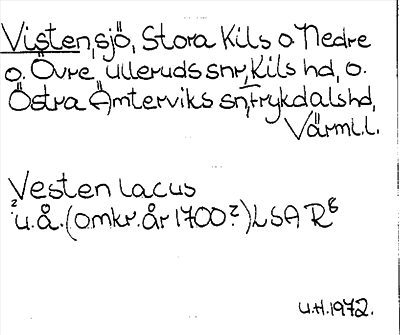 Visten, sjö, Stora Kils o. Nedre
o. Övre Ulleruds snr, Kils hd, o.
Östra Ämterviks sn, Frykdalshd,
Värml.l.
Vesten Lacus
u.å. (omkr. år 1700?) LSA R6
U.H. 1972.